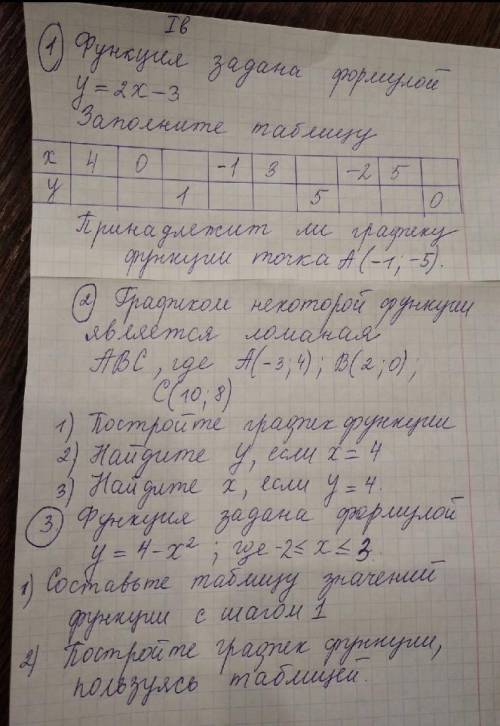 Iв
① Функция задана формулой
y = 2x - 3
Заполните таблицу
x 4 0 -1 3 -2 5
y 1 5 0
Принадлежит ли графику
функции точка A(-1; -5).
② Графиком некоторой функции
является ломаная
ABC, где A(-3; 4); B(2; 0);
C(10; 8)
1) Постройте график функции
2) Найдите y, если x = 4
3) Найдите x, если y = 4.
③ Функция задана формулой
y = 4 - x²; где -2 ≤ x ≤ 3.
1) Составьте таблицу значений
функции с шагом 1
2) Постройте график функции,
пользуясь таблицей.